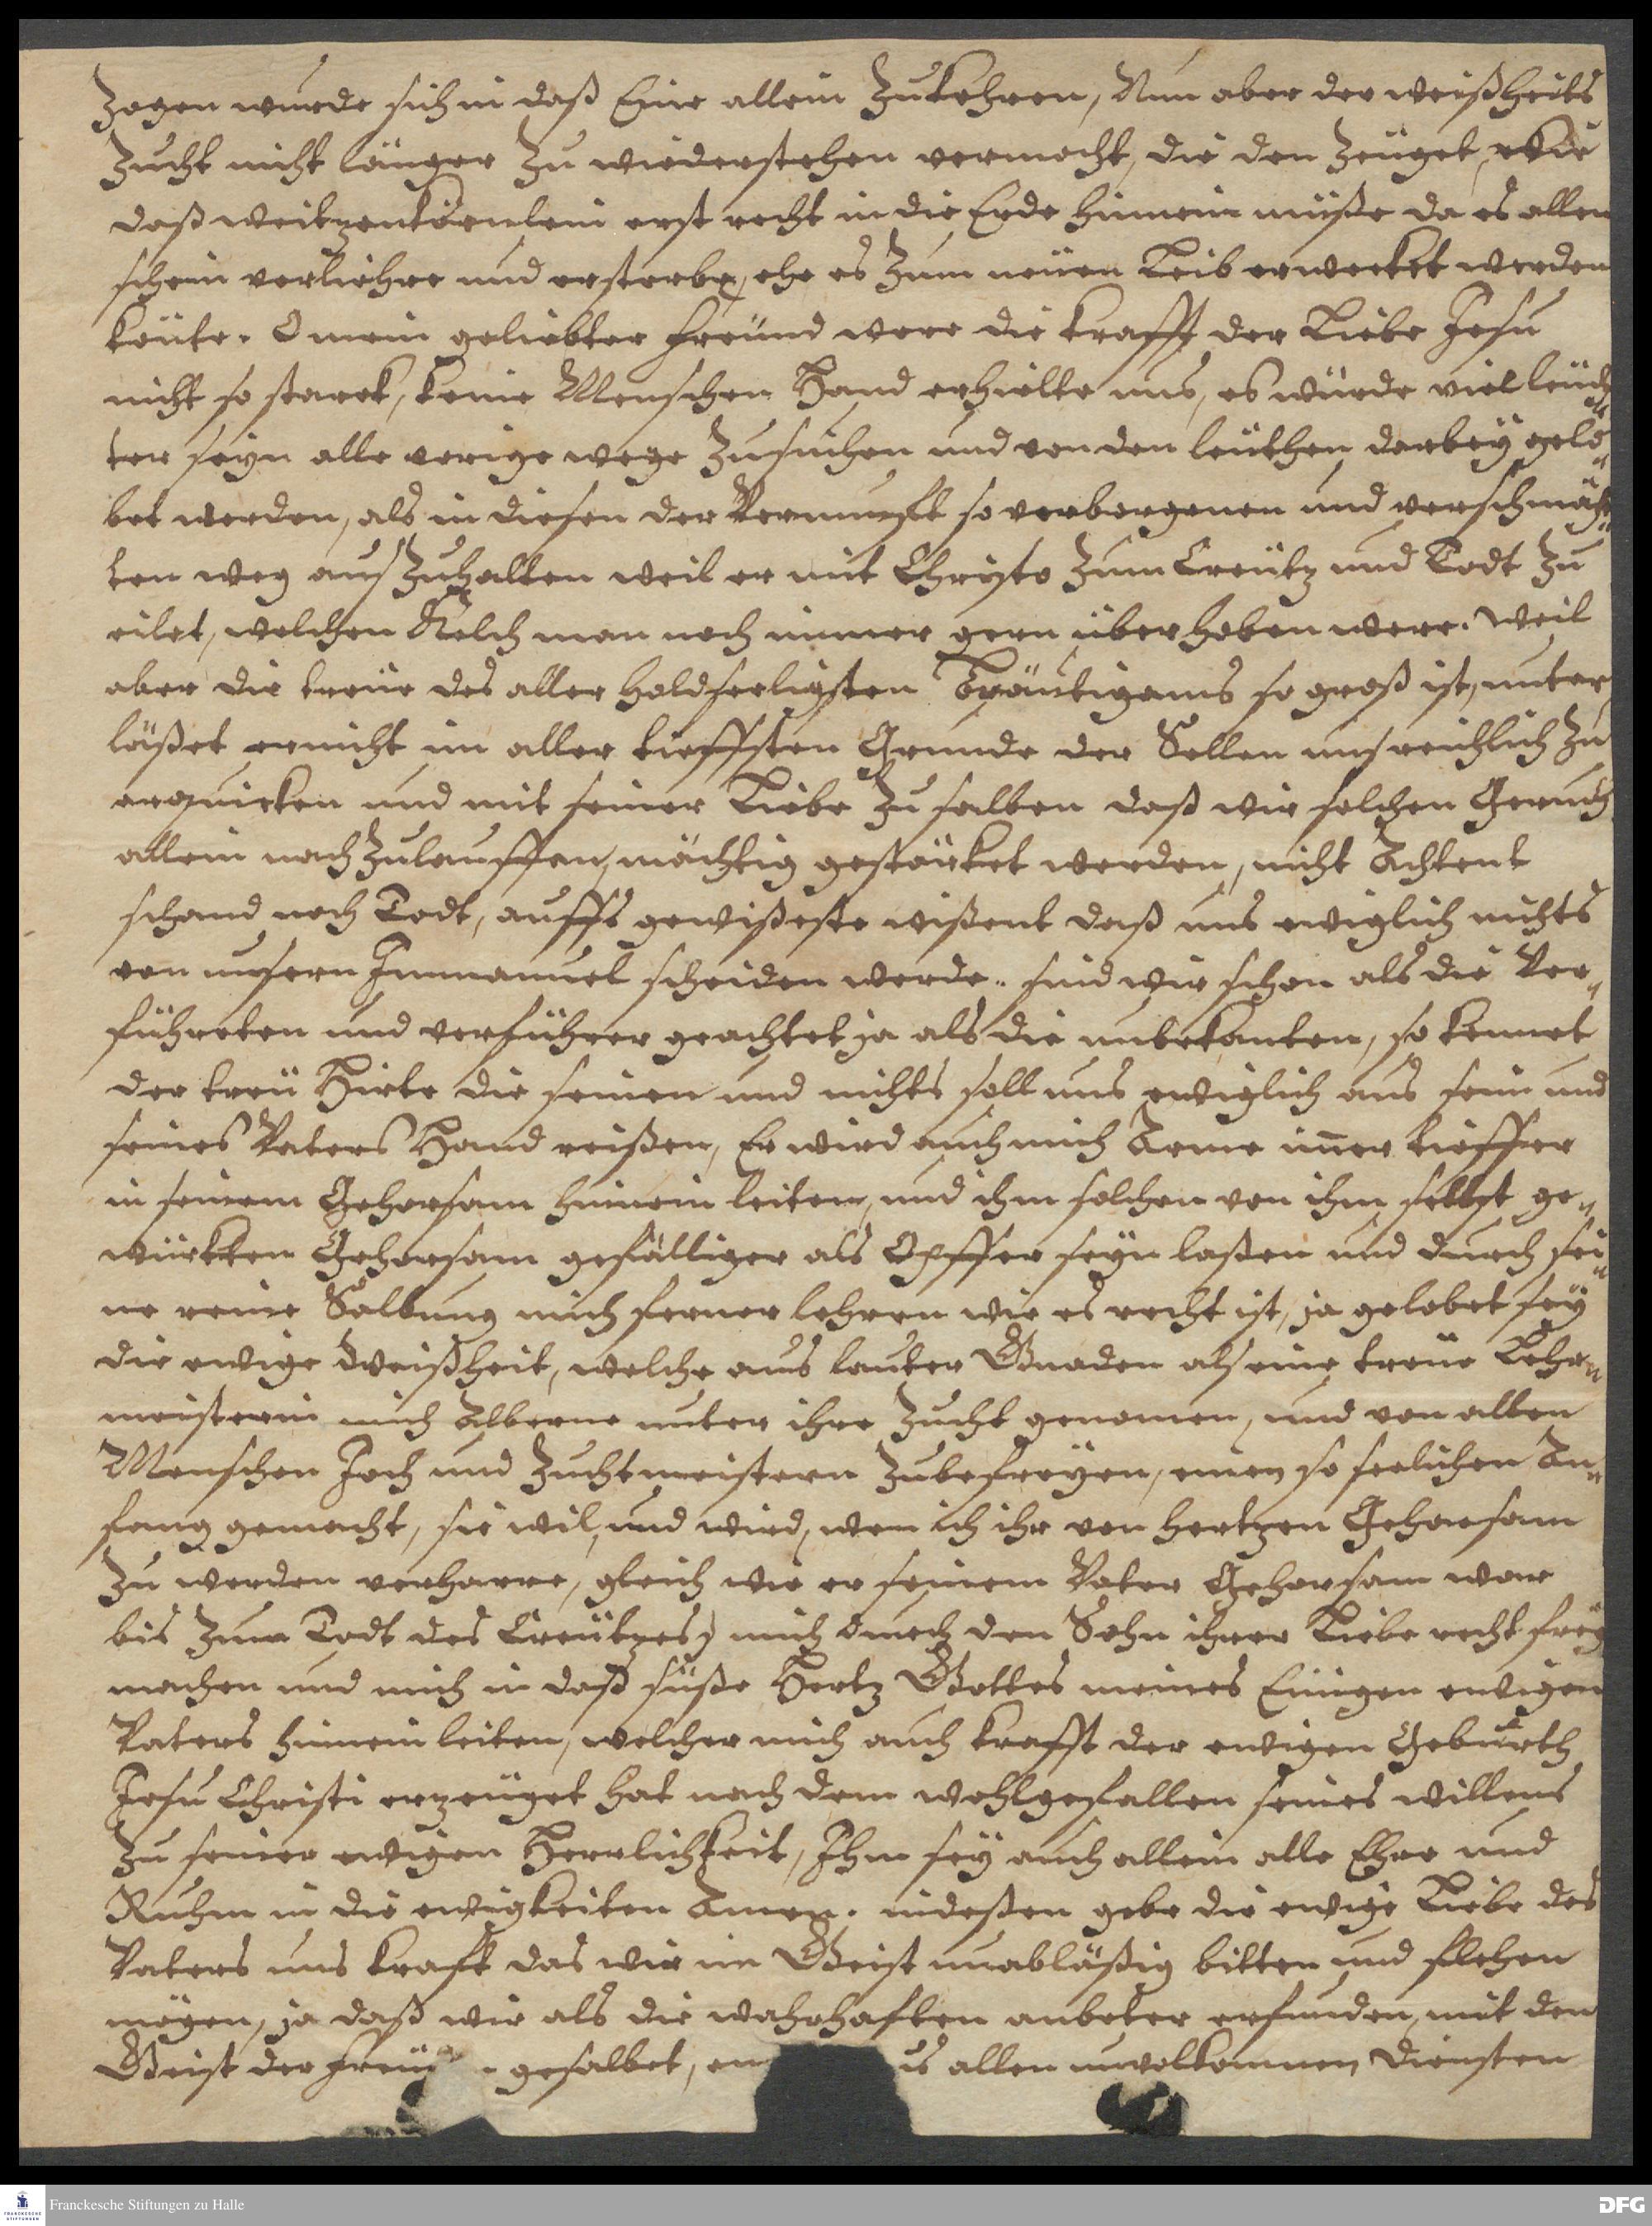 zogen wurde sich in daß Eine allein Zukehren, Nun aber der weißheits
Zucht nicht länger Zu wiederstehen vermocht, die den Zeüget, wie
daß weitzenkörnlein erst recht in die Erde hinnein müße da es allen
schein verliehre und ersterbe, ehe es Zum neüen Leib erwecket werden
könte. O mein geliebter freünd were die krafft der Liebe Jesu
nicht so starck, keine Menschen Hand erhielte uns, es würde viel leüch„
ter seyn alle vorige wege Zusuchen und von den leüthen darbeÿ gelo„
bet werden, als in diesen der Vernunfft so verborgenen und verschmäh„
ten weg aus Zuhalten weil er mit Christo Zum Creütz und Todt Zu
eilet, welchen Kelch man noch immer gern überhoben were. weil
aber die treüe des aller holdseeligsten Bräutigams so groß ist, unter„
läßet er nicht im aller tieffsten Grunde der Sellen uns reichlich Zu
erquicken und mit seiner Liebe Zu salben daß wir solchen Geruch
allein nach Zulauffen, mächtig gestärcket werden, nicht Achtent
schand noch Todt, auffs gewißeste wißent daß uns ewiglich nichts
von unsern Immanuel scheiden werde. sind wir schon als die Ver„
führeten und verführer geachtet ja als die unbekanten, so kennet
der treü Hirte die seinen und nichts soll uns ewiglich aus sein und
seines Vaters Hand reißen, Er wird auch mich Arme im̃er tieffer
in seinem Gehorsam hinnein leiten, und ihm solchen von ihm selbst ge„
würkten Gehorsam gefälliger als Opffer seyn laßen und durch sei„
ne reine Salbung mich ferner lehren wie es recht ist, ja gelobet seÿ
die ewige Weißheit, welche aus lauter Gnaden als eine treüe Lehr„
meisterin mich Alberne unter ihre Zucht genomen, und von allen
Menschen Joch und Zuchtmeistern Zubefreÿen, einen so seelichen An„
fang gemacht, sie wil, und wird, wen ich ihr von hertzen Gehorsam
Zu werden verharre, gleich wie er seinem Vater Gehorsam war
bis Zum Todt des Creützes) mich durch den Sohn ihrer Liebe recht freÿ
machen und mich in daß süße Hertz Gottes meines Einigen ewigen
Vaters hinnein leiten, welcher mich auch krafft der ewigen Geburth
Jesu Christi erzeüget hat nach dem wohlgefallen seines willens
Zu seiner ewigen Herrlichkeit, Ihm seÿ auch allein alle Ehre und
Ruhm in die ewigkeiten Amen. indeßen gebe die ewige Liebe des
Vaters uns kraft das wir im Geist unabläßig bitten und flehen
mögen, ja daß wir als die wahrhafften anbeter erfunden, mit den
Geist der freü gesalbet, allen unvolkomnen Diensten
Franckesche Stiftungen zu Halle
DFG